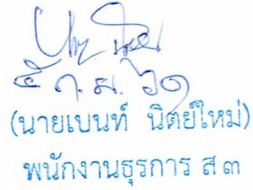 ๕ ก.ย. ๖๑
(นายเบนท์ นิตย์ใหม่)
พนักงานธุรการ ส ๓